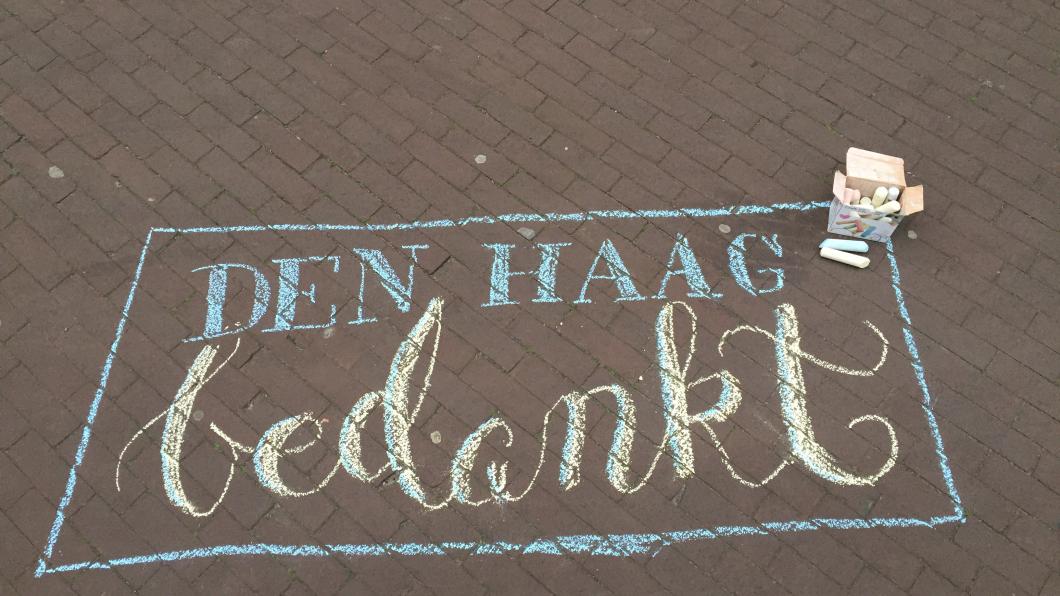 DEN HAAG
bedankt